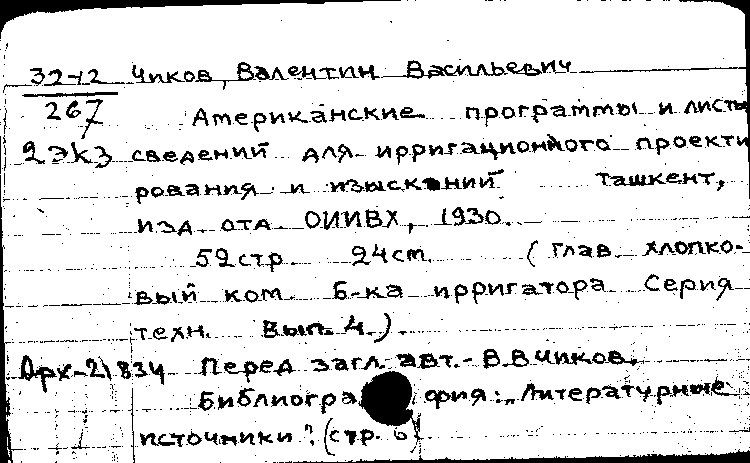 32-12 Чиков, Валентин Васильевич
267 Американские программы и листы
2 экз сведений для ирригационного проекти
рования и изысканий Ташкент,
изд. ота. ОИИВХ, 1930.
52 стр. 24 cm. (Глав. хлопко-
вый ком. Б-ка ирригатора. Серия
техн. Вып. 4.).
Арх-21834 Перед загл. авт.- В.В Чиков.
Библиогра фия: „Литературные
источники": (стр. 6)